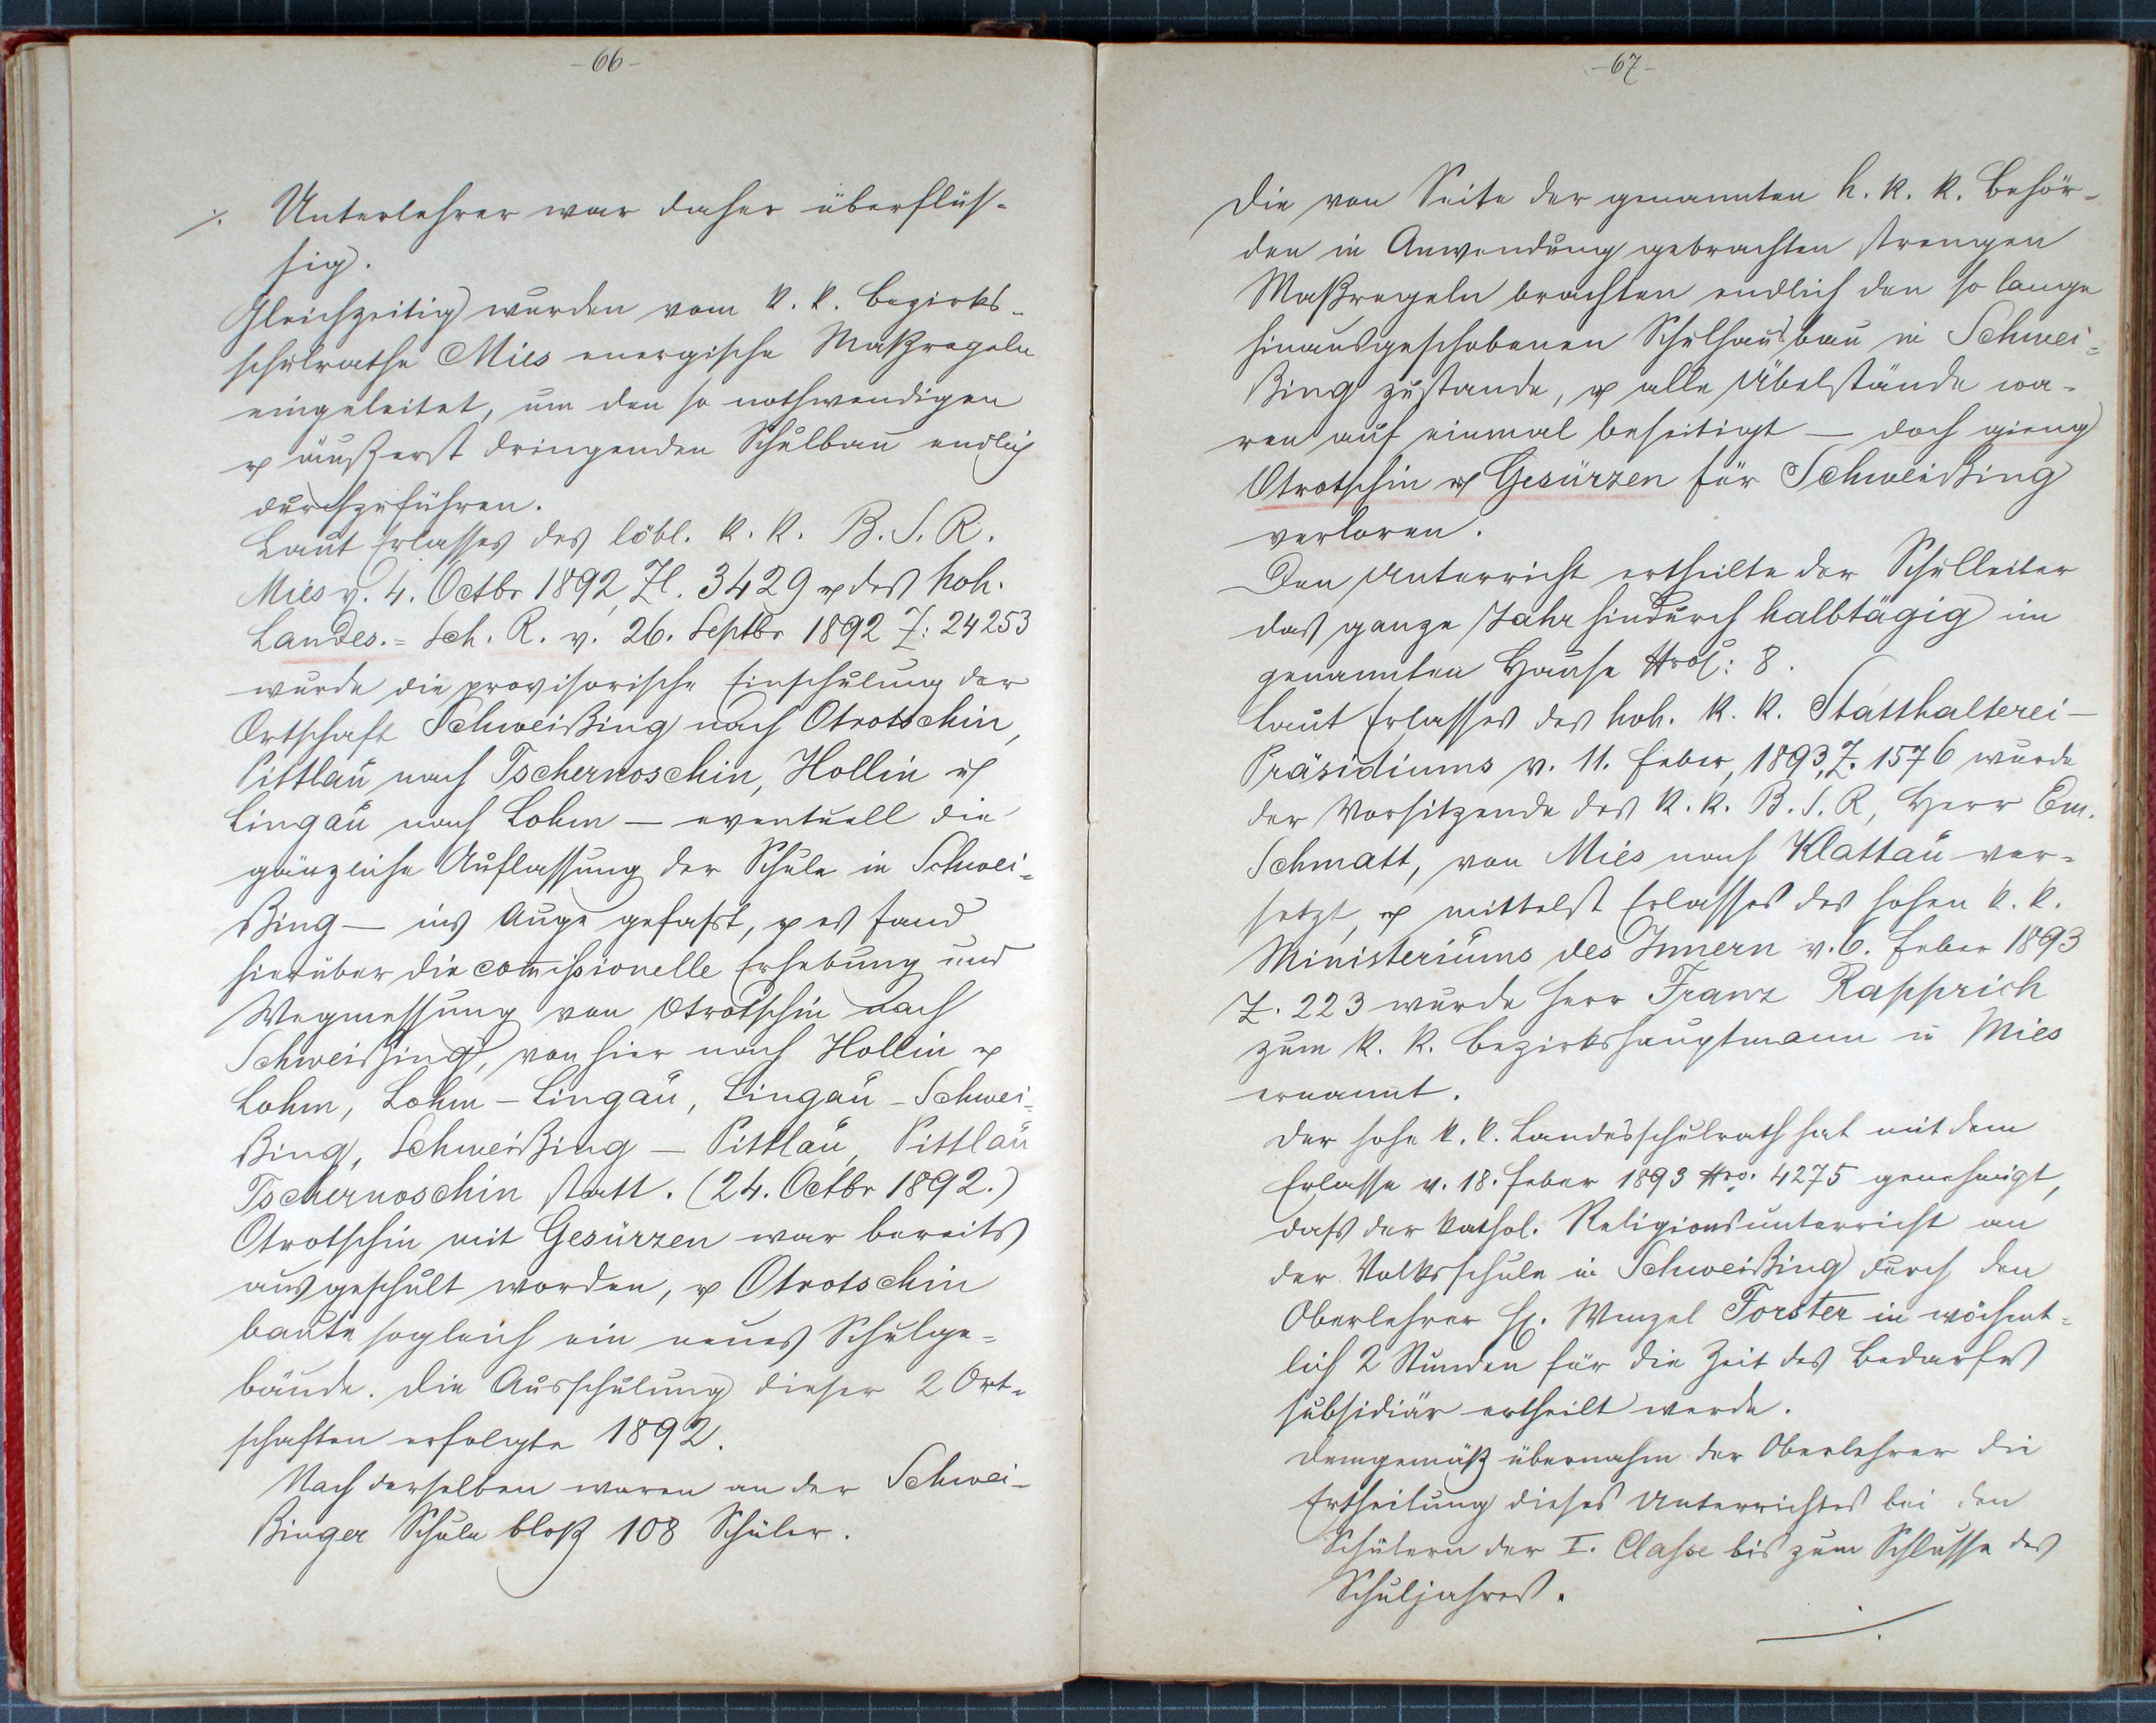 -66-
./. Unterlehrer war daher überflüs-
sig.
Gleichzeitig wurden vom k. k. Bezirks-
schulrathe Mies energische Maßregeln
eingeleitet, um den so nothwendigen
u. äußerst dringenden Schulbau endlich
durchzuführen.
Laut Erlasses des löbl. k. k. B. S. R.
Mies v. 4. Octbr 1892, Zl. 3429 u. des hoh.
Landes.= Sch. R. v. 26. Septbr 1892 Z: 24253
wurde die provisorische Einschulung der
Ortschaft Schweißing nach Otrotschin,
Pittlau nach Tschernoschin, Hollin u.
Lingau nach Lohm — eventuell die
gänzliche Auflassung der Schule in Schwei-
ßing — ins Auge gefasst, u. es fand
hierüber die commissionelle Erhebung und
Wegmessung von Otrotschin nach
Schweißing, von hier nach Hollin u.
Lohm, Lohm - Lingau, Lingau - Schwei-
ßing, Schweißing — Pittlau, Pittlau
Tschernoschin statt. (24. Octbr 1892.)
Otrotschin mit Gesürzen war bereits
ausgeschult worden, u. Otrotschin
baute sogleich ein neues Schulge-
bäude. Die Ausschulung dieser 2 Ort-
schaften erfolgte 1892.
Nach derselben waren an der Schwei-
ßinger Schule bloß 108 Schüler.
-67-
Die von Seite der genannten h. k. k. Behör-
den in Anwendung gebrachten strengen
Maßregeln brachten endlich den so lange
hinausgeschobenen Schulhausbau in Schwei-
ßing zustande, u. alle Übelstände wa-
ren auf einmal beseitigt — doch gieng
Otrotschin u. Gesürzen für Schweißing
verloren.
Den Unterricht ertheilte der Schulleiter
das ganze Jahr hindurch halbtägig im
genannten Hause Nro: 8.
Laut Erlasses des hoh. k. k. Statthalterei-
Präsidiums v. 11. Feber, 1893, Z. 1576 wurde
der Vorsitzende des k. k. B. S. R, Herr Em.
Schmatt, von Mies nach Klattau ver-
setzt, u. mittelst Erlasses des hohen k. k.
Ministeriums des Innern v. 6. Feber 1893
Z. 223 wurde Herr Franz Rapprich
zum k. k. Bezirkshauptmann in Mies
ernannt.
Der hohe k. k. Landesschulrath hat mit dem
Erlasse v. 18. Feber 1893 Nro. 4275 genehmigt,
dass der kathol. Religionsunterricht an
der Volksschule in Schweißing durch den
Oberlehrer H. Wenzel Forster in wöchent-
lich 2 Stunden für die Zeit des Bedarfes
subsidiär ertheilt werde.
Demgemäß übernahm der Oberlehrer die
Ertheilung dieses Unterrichtes bei den
Schülern der I. Classe bis zum Schlusse des
Schuljahres.
./.